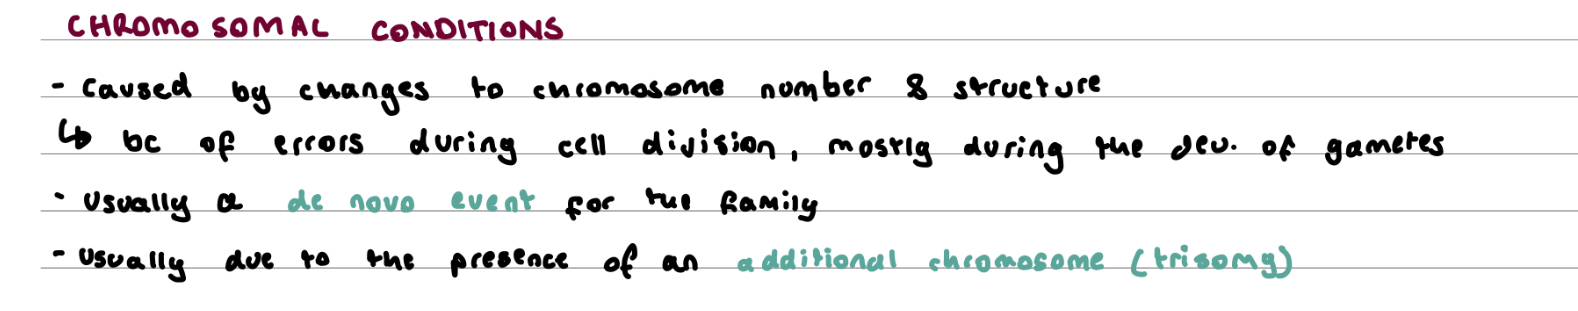 CHROMOSOMAL CONDITIONS
- caused by changes to chromosome number & structure
↳ bc of errors during cell division, mostly during the dev. of gametes
- usually a de novo event for the family
- usually due to the presence of an additional chromosome (trisomy)